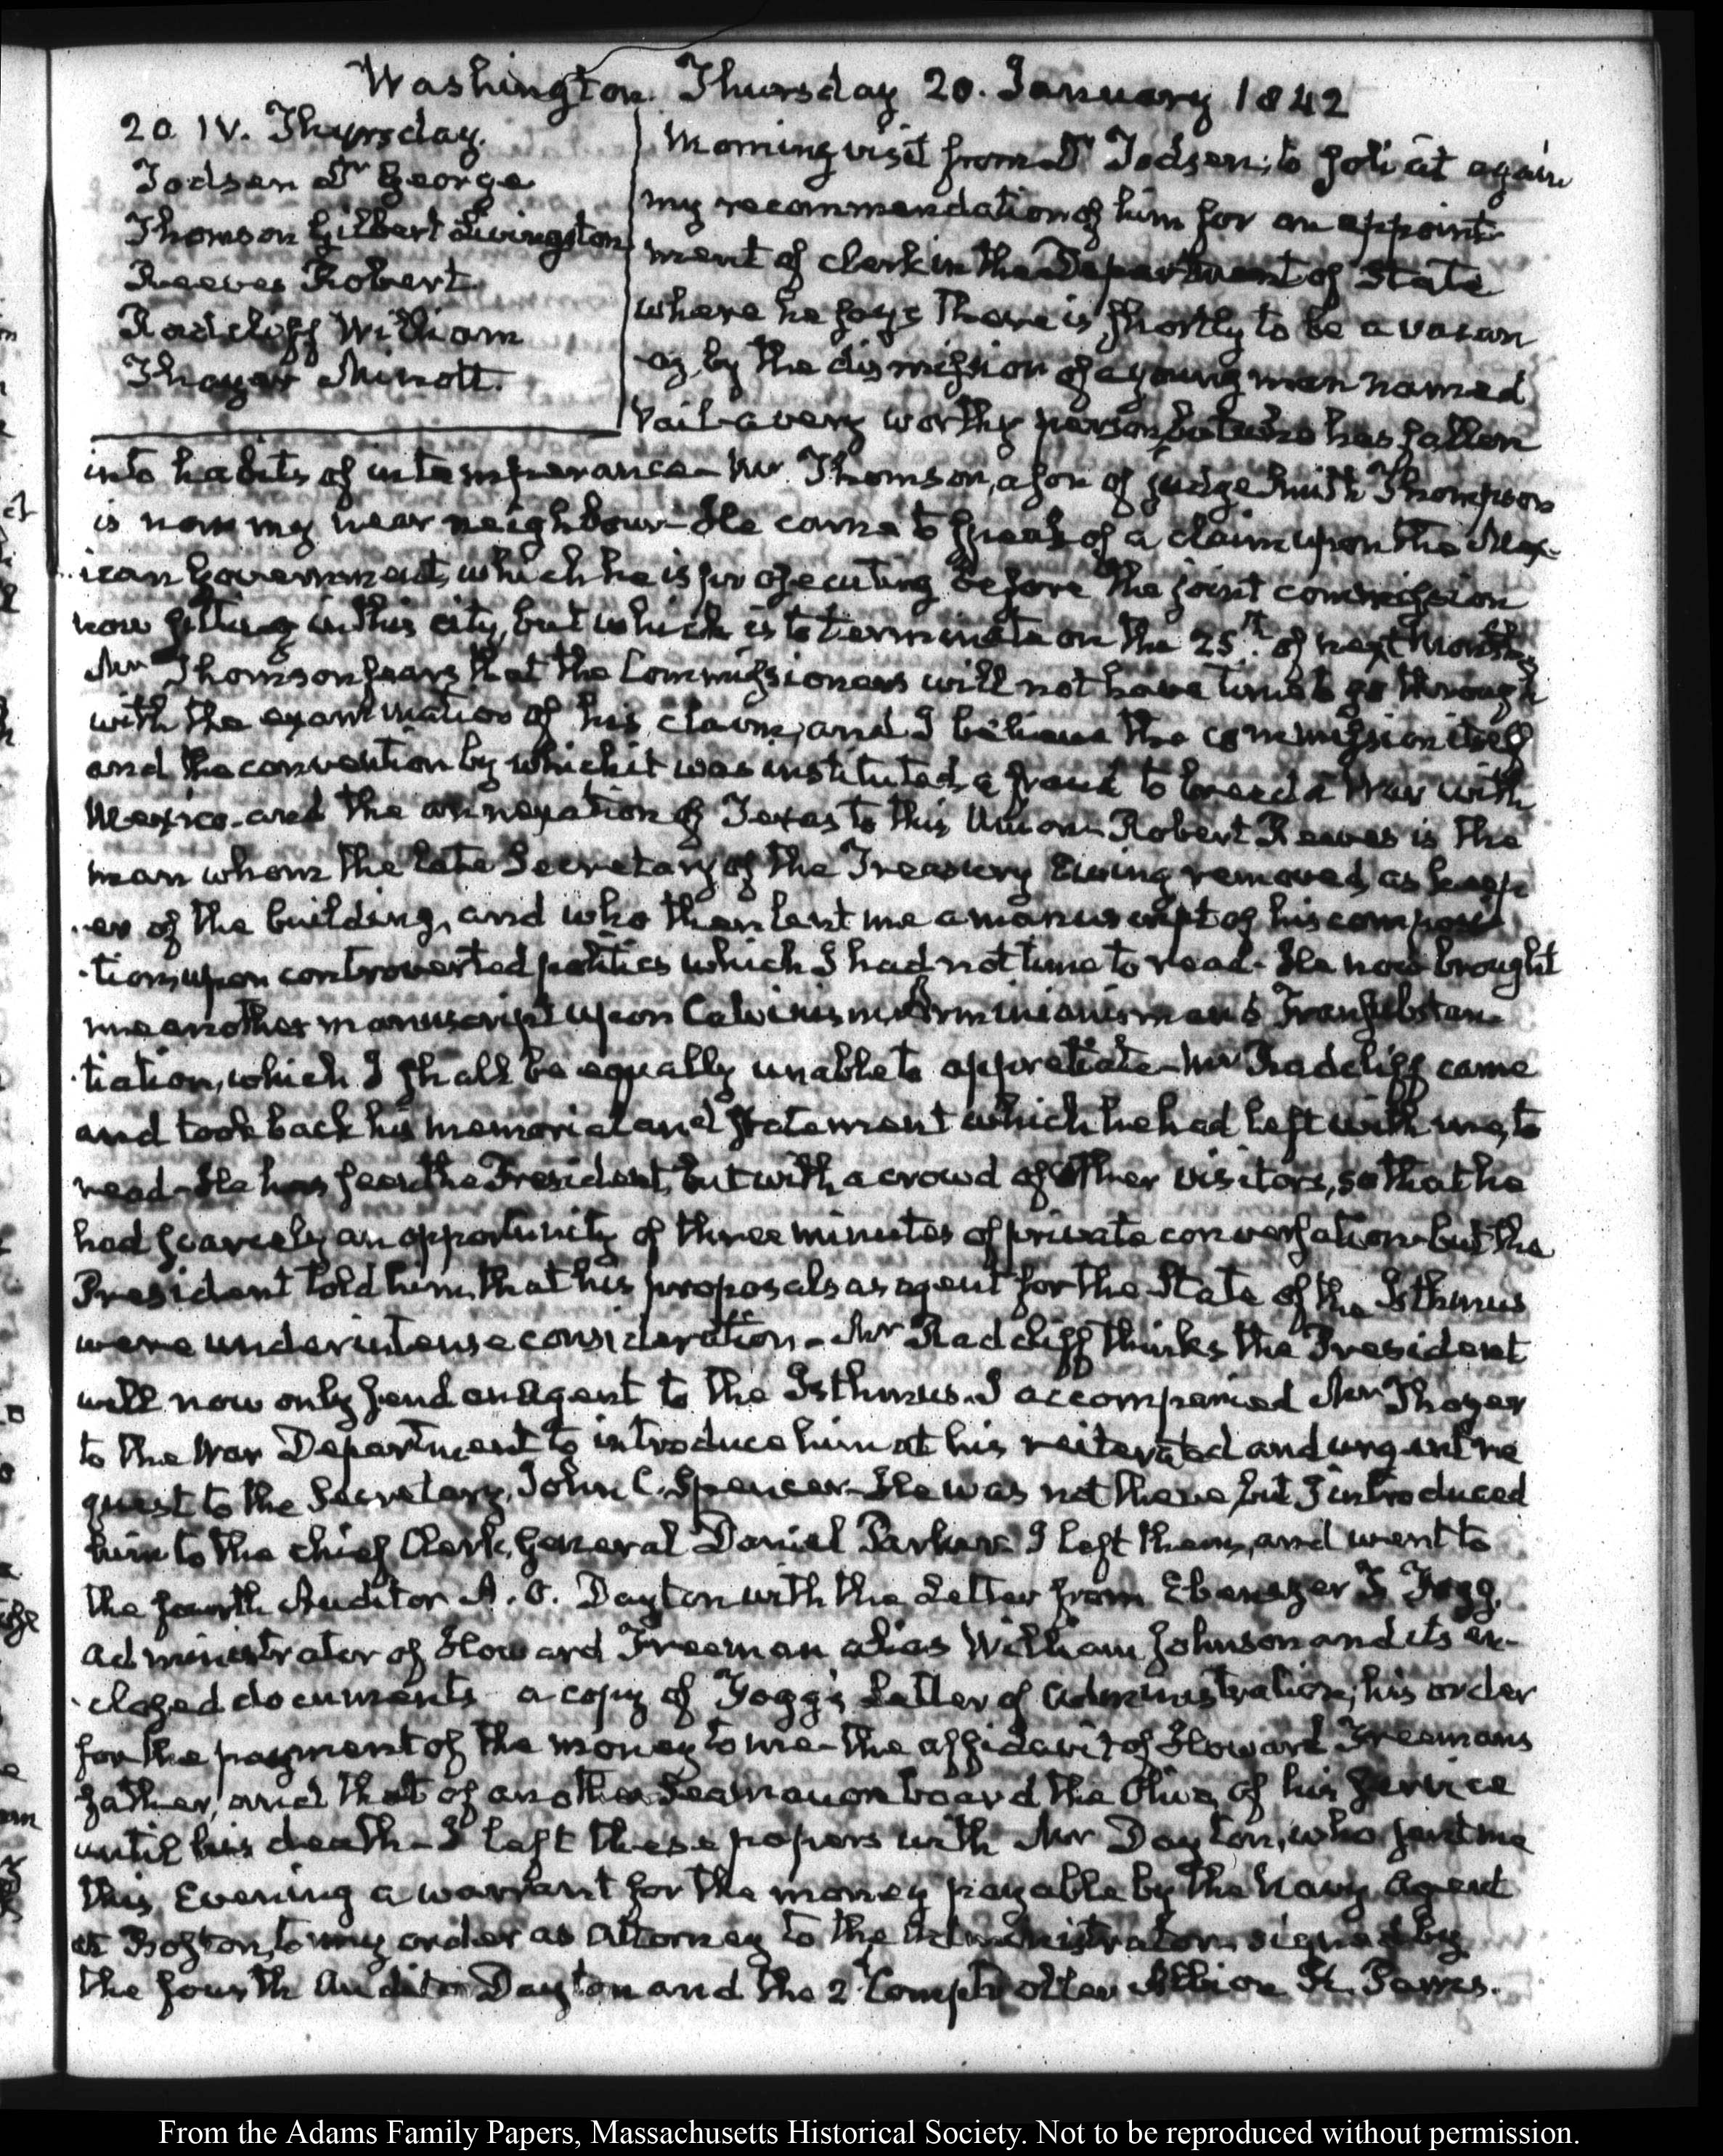 Washington Thursday 20. January 1842
20. IV. Thursday.
Todsen Dr George
Thomson Gilbert Livingston
Reeves Robert
Radcliff William
Thayer Minott.
Morning visit from Dr Todsen; to solicit again
my recommendation of him for an appoint-
ment of clerk in the Department of State
where he says there is shortly to be a vacan
-cy by the dismission of a young man named
Vail a very worthy person, but who has fallen
into habits of intemperance— Mr Thomson, a son of Judge Smith Thompson
is now my near neighbour— He came to speak of a claim upon the Mex-
-ican Government, which he is prosecuting before the joint commission
now sitting in this city, but which is to terminate on the 25th of next Month.
Mr Thomson fears that the Commissioners will not have time to go through
with the examination of his claim, and I believe the commission itself
and the convention by which it was instituted, a fraud to breed a War with
Mexico and the annexation of Texas to this Union— Robert Reeves is the
man whom the late Secretary of the Treasury Ewing removed, as keep
-er of the building, and who then lent me a manuscript of his composi
-tion, upon controverted politics which I had not time to read— He now brought
me another manuscript upon Calvinism, Arminianism and Transubstan-
-tiation, which I shall be equally unable to appretiate— Mr Radcliff came
and took back his memorial and statement which he had left with me, to
read— He has seen the President, but with a crowd of other visitors, so that he
had scarcely an opportunity of three minutes of private conversation— but the
President told him, that his proposals as agent for the State of the Isthmus
were under intense consideration— Mr Radcliff thinks the President
will now only send an Agent to the Isthmus. I accompanied Mr Thayer
to the War Department to introduce him at his reiterated and urgent re
quest to the Secretary, John C. Spencer— He was not there, but I introduced
him to the chief Clerk, General Daniel Parker— I left them, and went to
the fourth Auditor A. O. Dayton with the Letter from Ebenezer T Fogg,
Administrator of Howard Freeman alias William Johnson and its en-
-closed documents a copy of Fogg's Letter of Administration; his order
for the payment of the money to me— the affidavit of Howard Freemans
father, and that of another Seaman on board the Olive, of his service
until his death— I left these papers with Mr Dayton, who sent me
this Evening a warrant for the money payable by the Navy Agent
at Boston, to my order as Attorney to the Administrator signed by
the fourth Auditor Dayton and the 2d Comptroller Albion K. Parris.
From the Adams Family Papers, Massachusetts Historical Society. Not to be reproduced without permission.